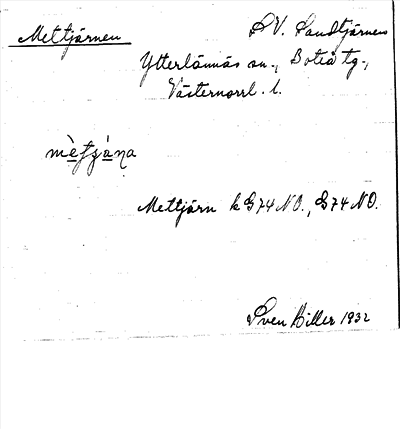 Mettjärnen
S V. Sandtjärnens
Ytterlännäs sn., Boteå tg.,
Västernorrl. l.
Mettjärn k G74 NO., G74 NO.
Sven Hiller 1932